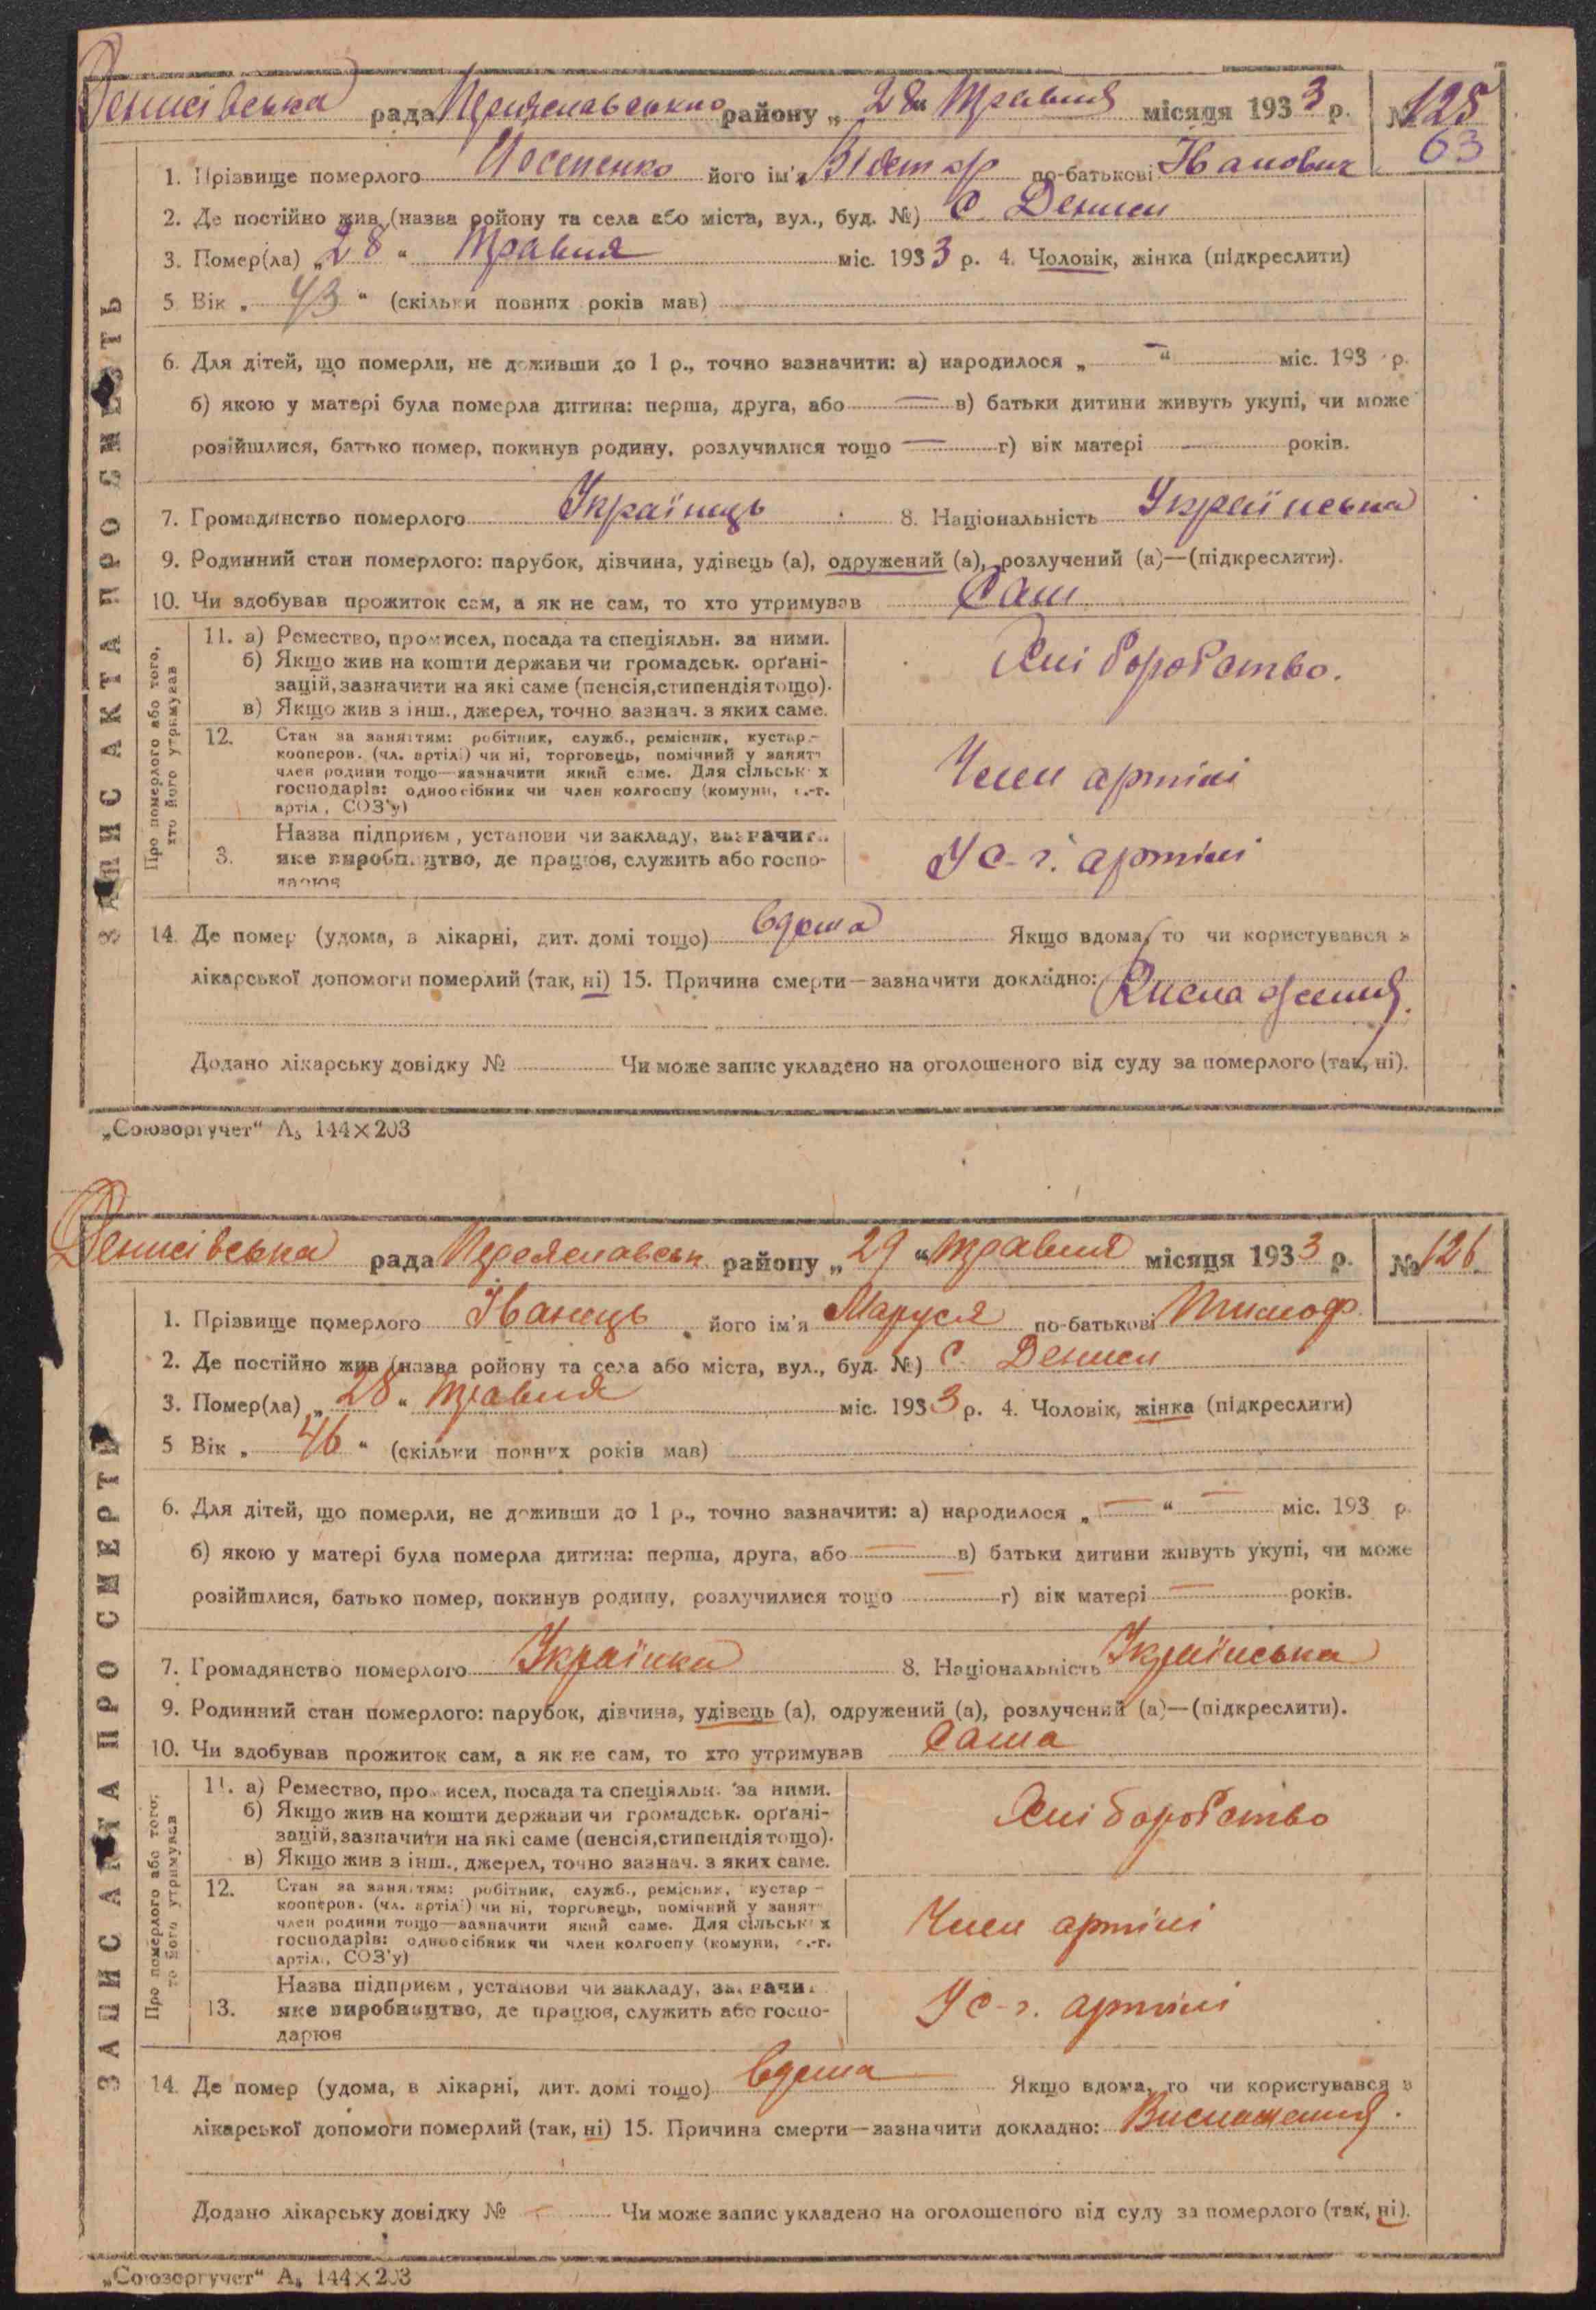 Денисівська рада Переяславського району „28“ Травня місяця 1933 р. № 125
63
1. Прізвище померлого Носененко його ім'я Віктор по-батькові Іванович
2. Де постійно жив (назва ройону та села або міста, вул., буд. №) С. Дениси
3. Помер(ла) „28“ Травня міс. 1933 р. 4. Чоловік, жінка (підкреслити)
5 Вік „43“ (скільки повних років мав)
6. Для дітей, що померли, не доживши до 1 р., точно зазначити: а) народилося „—“ міс. 193 р.
б) якою у матері була померла дитина: перша, друга, або — в) батьки дитини живуть укупі, чи може
розійшлися, батько помер, покинув родину, розлучилися тощо — г) вік матері — років.
7. Громадянство померлого Українець 8. Національність Українська
9. Родинний стан померлого: парубок, дівчина, удівець (а), одружений (а), розлучений (а)—(підкреслити).
10. Чи здобував прожиток сам, а як не сам, то хто утримував Сам
ЗАПИС АКТА ПРО СМЕРТЬ
Про померлого або того, хто його утримував
11. а) Ремество, промисел, посада та спеціяльн. за ними.
б) Якщо жив на кошти держави чи громадськ. орґані-
зацій, зазначити на які саме (пенсія, стипендія тощо).
в) Якщо жив з інш., джерел, точно зазнач. з яких саме.
Хліборобство.
12. Стан за заняттям: робітник, служб., ремісник, кустар.-
кооперов. (чл. артіл.) чи ні, торговець, помічний у занятт
член родини тощо—зазначити який саме. Для сільськ х
господарів: одноосібник чи член колгоспу (комуни, с.-г.
артіл., СОЗ'у)
Член артілі
3. Назва підприєм, установи чи закладу, зазначит.
яке виробництво, де працює, служить або госпо-
дарює
У с-г. артілі
14. Де помер (удома, в лікарні, дит. домі тощо) вдома Якщо вдома, то чи користувався з
лікарської допомоги померлий (так, ні) 15. Причина смерти—зазначити докладно:
Додано лікарську довідку № Чи може запис укладено на оголошеного від суду за померлого (так, ні).
„Союзоргучет“ А₅ 144×203
Денисівська рада Переяславськ району „29“ травня місяця 1933 р. № 126
1. Прізвище померлого Іванець його ім'я Маруся по-батькові Тимоф.
2. Де постійно жив (назва ройону та села або міста, вул., буд. №) С. Дениси
3. Помер(ла) „28“ травня міс. 1933 р. 4. Чоловік, жінка (підкреслити)
5 Вік „46“ (скільки повних років мав)
6. Для дітей, що померли, не доживши до 1 р., точно зазначити: а) народилося „—“ — міс. 193 р.
б) якою у матері була померла дитина: перша, друга, або — в) батьки дитини живуть укупі, чи може
розійшлися, батько помер, покинув родину, розлучилися тощо — г) вік матері — років.
7. Громадянство померлого Українка 8. Національність Українська
9. Родинний стан померлого: парубок, дівчина, удівець (а), одружений (а), розлучений (а)—(підкреслити).
10. Чи здобував прожиток сам, а як не сам, то хто утримував Сама
ЗАПИС АКТА ПРО СМЕРТЬ
Про померлого або того, то його утримував
11. а) Ремество, промисел, посада та спеціяльн. за ними.
б) Якщо жив на кошти держави чи громадськ. орґані-
зацій, зазначити на які саме (пенсія, стипендія тощо).
в) Якщо жив з інш., джерел, точно зазнач. з яких саме.
Хліборобство
12. Стан за заняттям: робітник, служб., ремісник, кустар-
кооперов. (чл. артіл.) чи ні, торговець, помічний у занят
член родини тощо—зазначити який саме. Для сільськ х
господарів: одноосібник чи член колгоспу (комуни, с.-г.
артіл., СОЗ'у)
Член артілі
13. Назва підприєм, установи чи закладу, зазначи
яке виробництво, де працює, служить або госпо-
дарює
У с-г. артілі
14. Де помер (удома, в лікарні, дит. домі тощо) вдома Якщо вдома, то чи користувався з
лікарської допомоги померлий (так, ні) 15. Причина смерти—зазначити докладно: Виснаження.
Додано лікарську довідку № — Чи може запис укладено на оголошеного від суду за померлого (так, ні).
„Союзоргучет“ А₅ 144×203